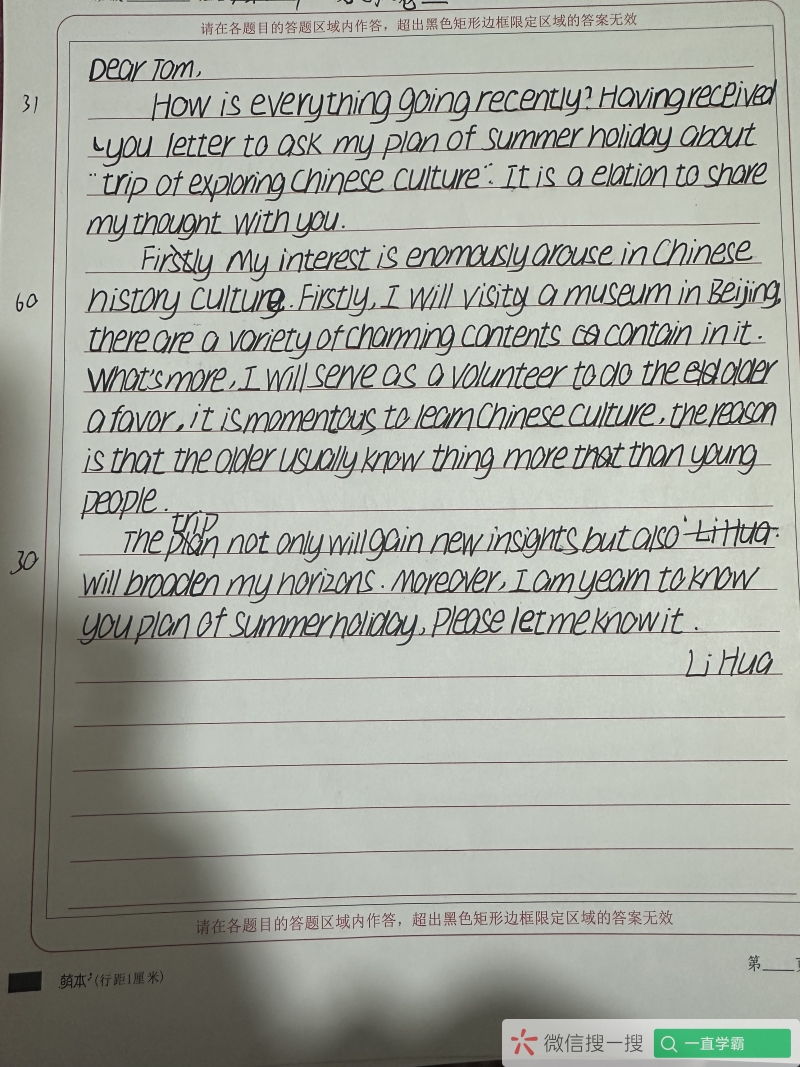 请在各题目的答题区域内作答，超出黑色矩形边框限定区域的答案无效
Dear Tom,
31
How is everything going recently? Having received
you letter to ask my plan of summer holiday about
"trip of exploring Chinese culture". It is a elation to share
my thought with you.
Firstly My interest is enomously arouse in Chinese
60
history culture. Firstly, I will visity a museum in Beijing,
there are a variety of charming contents contain in it.
What's more, I will serve as a volunteer to do the older
a favor, it is momentous to learn Chinese culture, the reason
is that the older usually know thing more that than young
people.
trip
The plan not only will gain new insights but also Li Hua.
30
will broaden my horizons. Moreover, I am yearn to know
you plan of summer holiday, Please let me know it.
Li Hua
请在各题目的答题区域内作答，超出黑色矩形边框限定区域的答案无效
萌本 (行距1厘米)
第
微信搜一搜
一直学霸